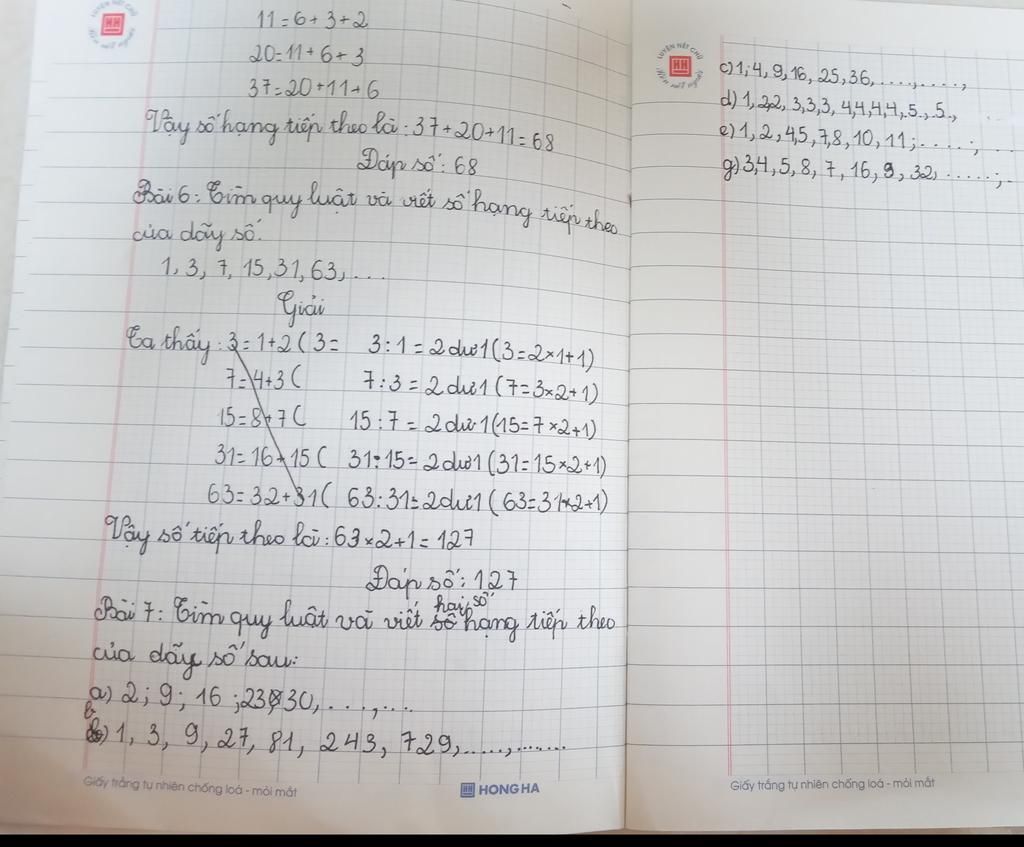 11 = 6 + 3 + 2
20 = 11 + 6 + 3
37 = 20 + 11 + 6
Vậy số hạng tiếp theo là : 37 + 20 + 11 = 68
Đáp số : 68
Bài 6 : Tìm quy luật và viết số hạng tiếp theo
của dãy số.
1, 3, 7, 15, 31, 63, ...
Giải
Ta thấy : 3 = 1 + 2 ( 3 = 3 : 1 = 2 dư 1 ( 3 = 2 × 1 + 1)
7 = 4 + 3 ( 7 : 3 = 2 dư 1 ( 7 = 3 × 2 + 1)
15 = 8 + 7 ( 15 : 7 = 2 dư 1 (15 = 7 × 2 + 1)
31 = 16 + 15 ( 31 : 15 = 2 dư 1 (31 = 15 × 2 + 1)
63 = 32 + 31 ( 63 : 31 = 2 dư 1 ( 63 = 31 × 2 + 1)
Vậy số tiếp theo là : 63 × 2 + 1 = 127
Đáp số : 127
Bài 7 : Tìm quy luật và viết hai số hạng tiếp theo
của dãy số sau:
a) 2 ; 9 ; 16 ; 23 ; 30, ..., ....
b) 1, 3, 9, 27, 81, 243, 729, ....., .......
Giấy trắng tự nhiên chống loá - mỏi mắt
HONG HA
LUYỆN NÉT CHỮ
HH
c) 1, 4, 9, 16, 25, 36, ....., .....,
d) 1, 2,2, 3,3,3, 4,4,4,4, 5.., .5..,
e) 1, 2, 4,5, 7,8, 10, 11; .....;
g) 3,4, 5, 8, 7, 16, 9, 32, .....;
Giấy trắng tự nhiên chống loá - mỏi mắt